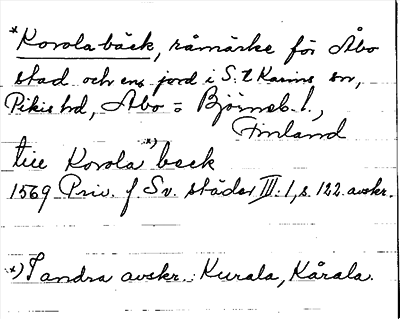 *Korola bäck, råmärke för Åbo
stad och ens jord i S:t Karins sn,
Pikis hd, Åbo = Björneb. l.,
Finland
till Korola *) beck
1569 Priv. f Sv. städer III:1, s. 122 avskr.
*) I andra avskr.: Kurala, Kårala.